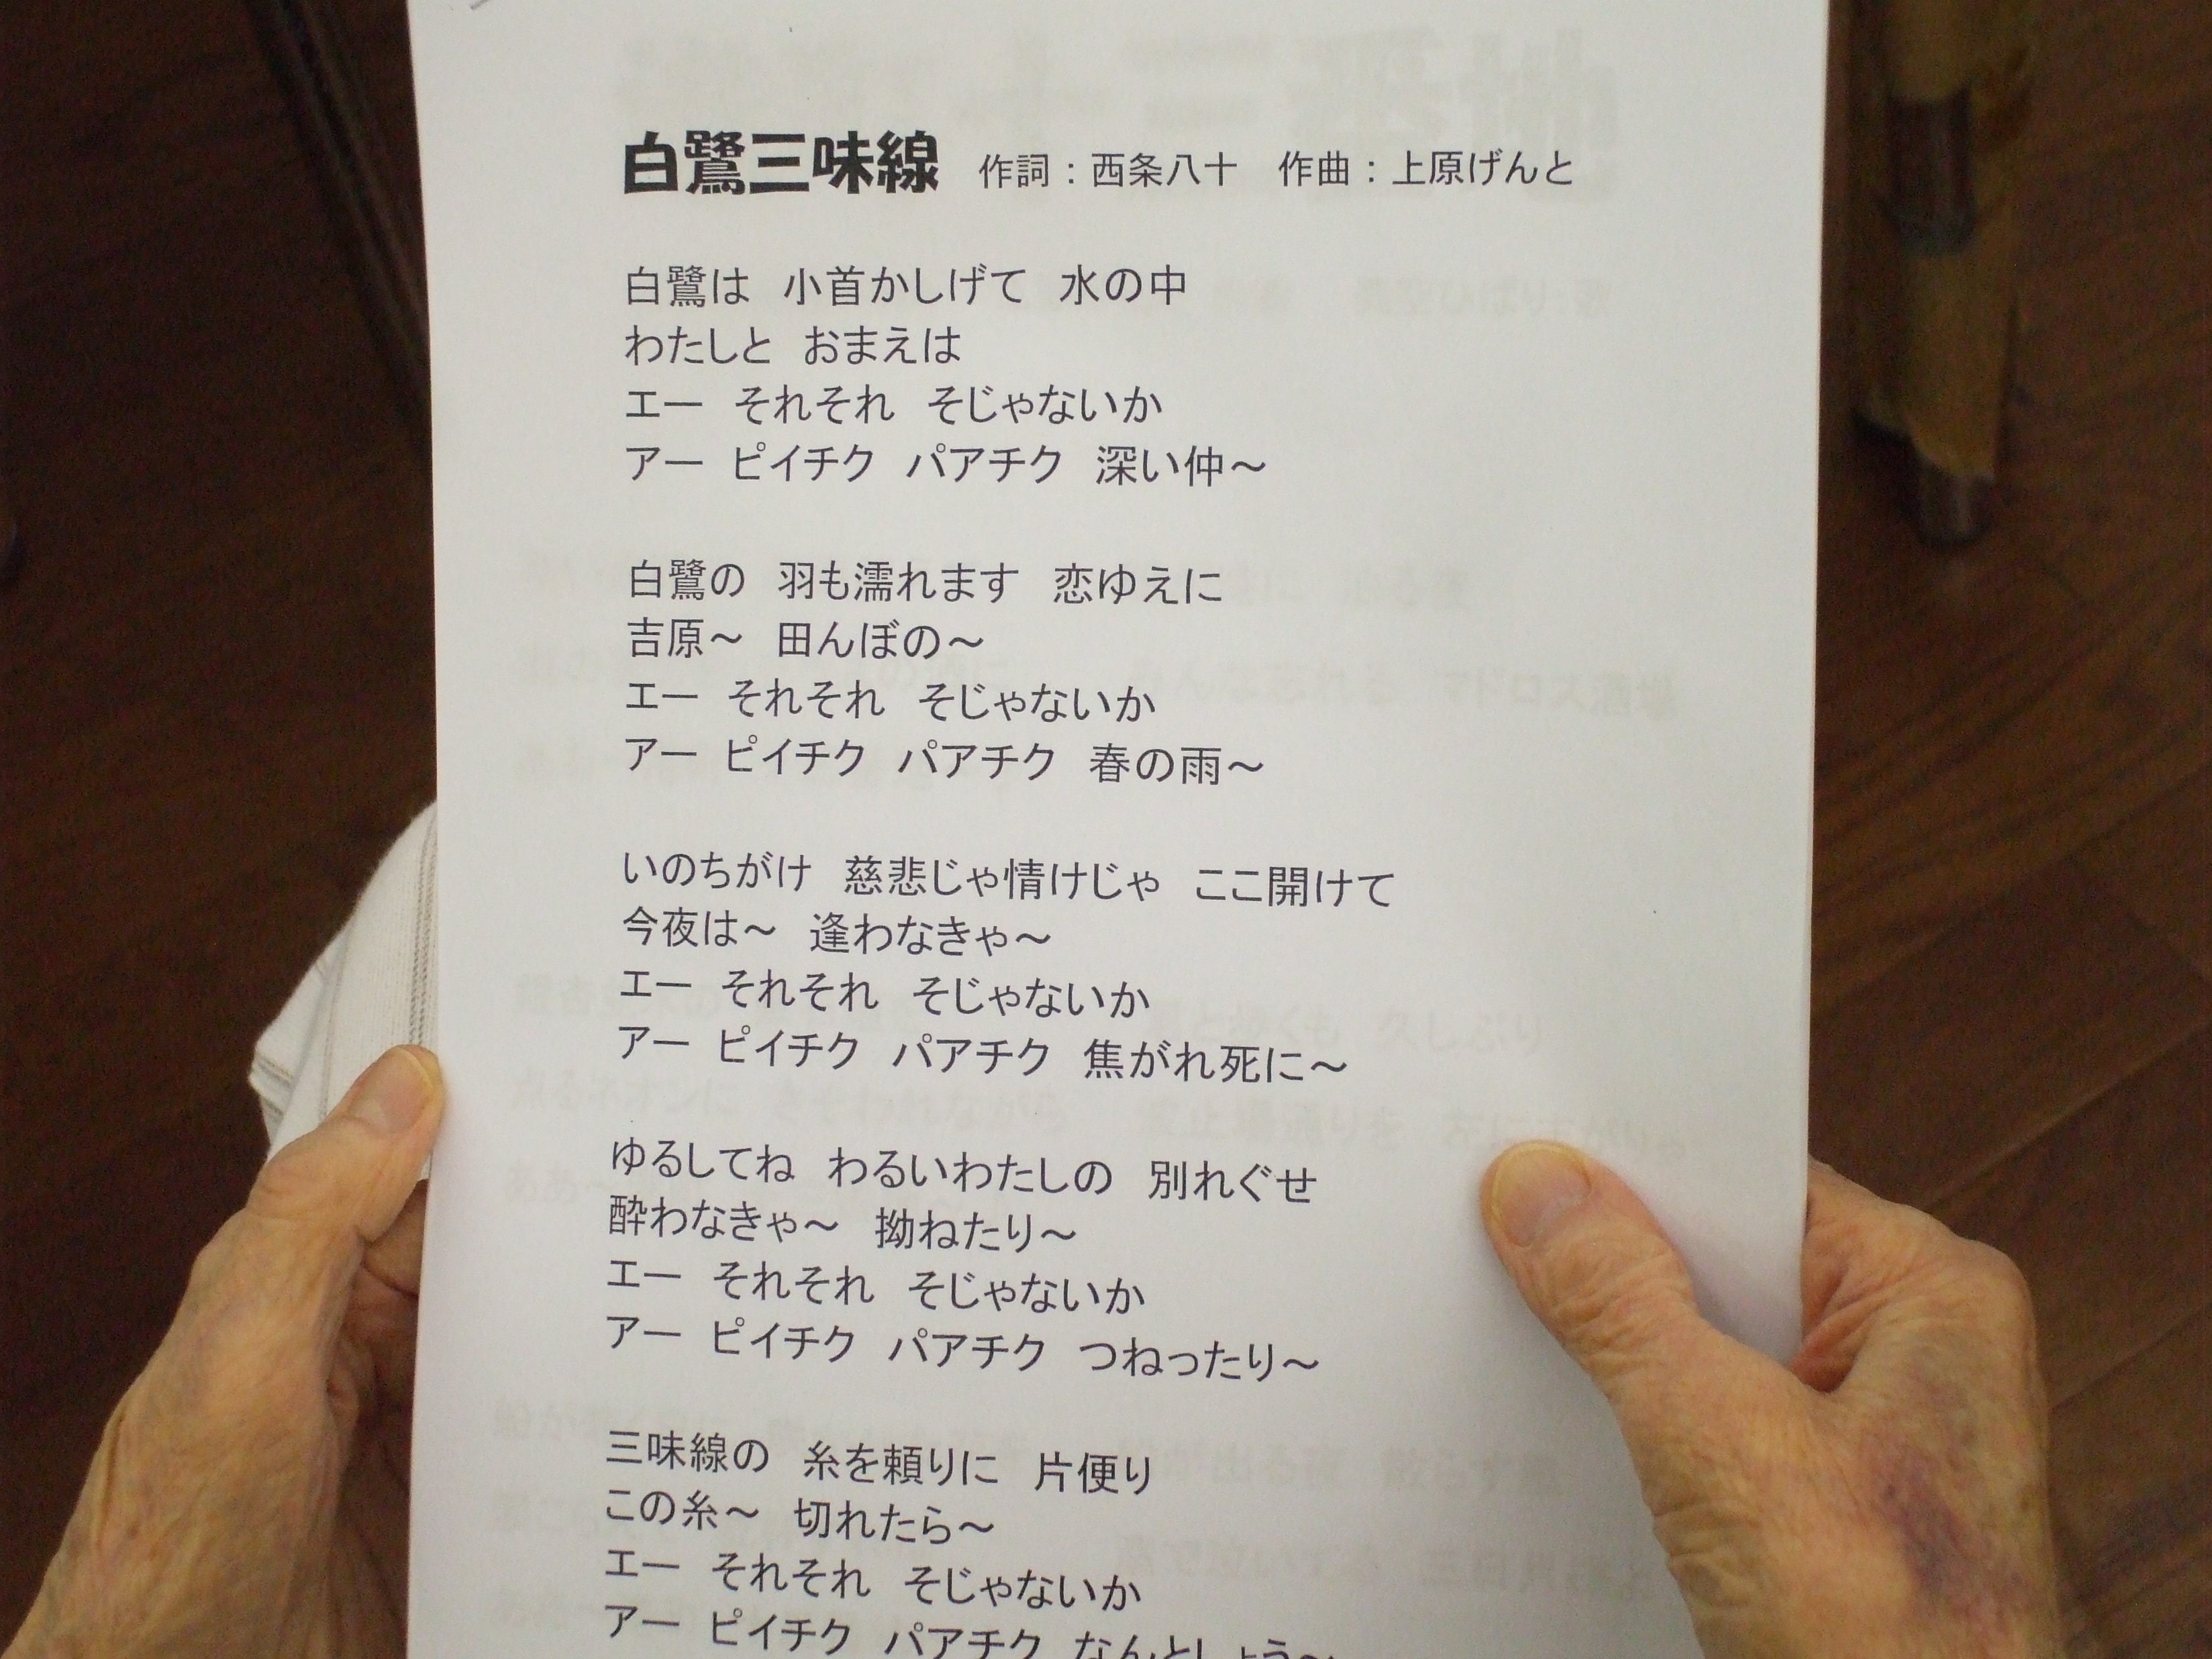 白鷺三味線　作詞：西条八十　作曲：上原げんと
白鷺は　小首かしげて　水の中
わたしと　おまえは
エー　それそれ　そじゃないか
アー　ピイチク　パアチク　深い仲～
白鷺の　羽も濡れます　恋ゆえに
吉原～　田んぼの～
エー　それそれ　そじゃないか
アー　ピイチク　パアチク　春の雨～
いのちがけ　慈悲じゃ情けじゃ　ここ開けて
今夜は～　逢わなきゃ～
エー　それそれ　そじゃないか
アー　ピイチク　パアチク　焦がれ死に～
ゆるしてね　わるいわたしの　別れぐせ
酔わなきゃ～　拗ねたり～
エー　それそれ　そじゃないか
アー　ピイチク　パアチク　つねったり～
三味線の　糸を頼りに　片便り
この糸～　切れたら～
エー　それそれ　そじゃないか
アー　ピイチク　パアチク　なんとしょう～